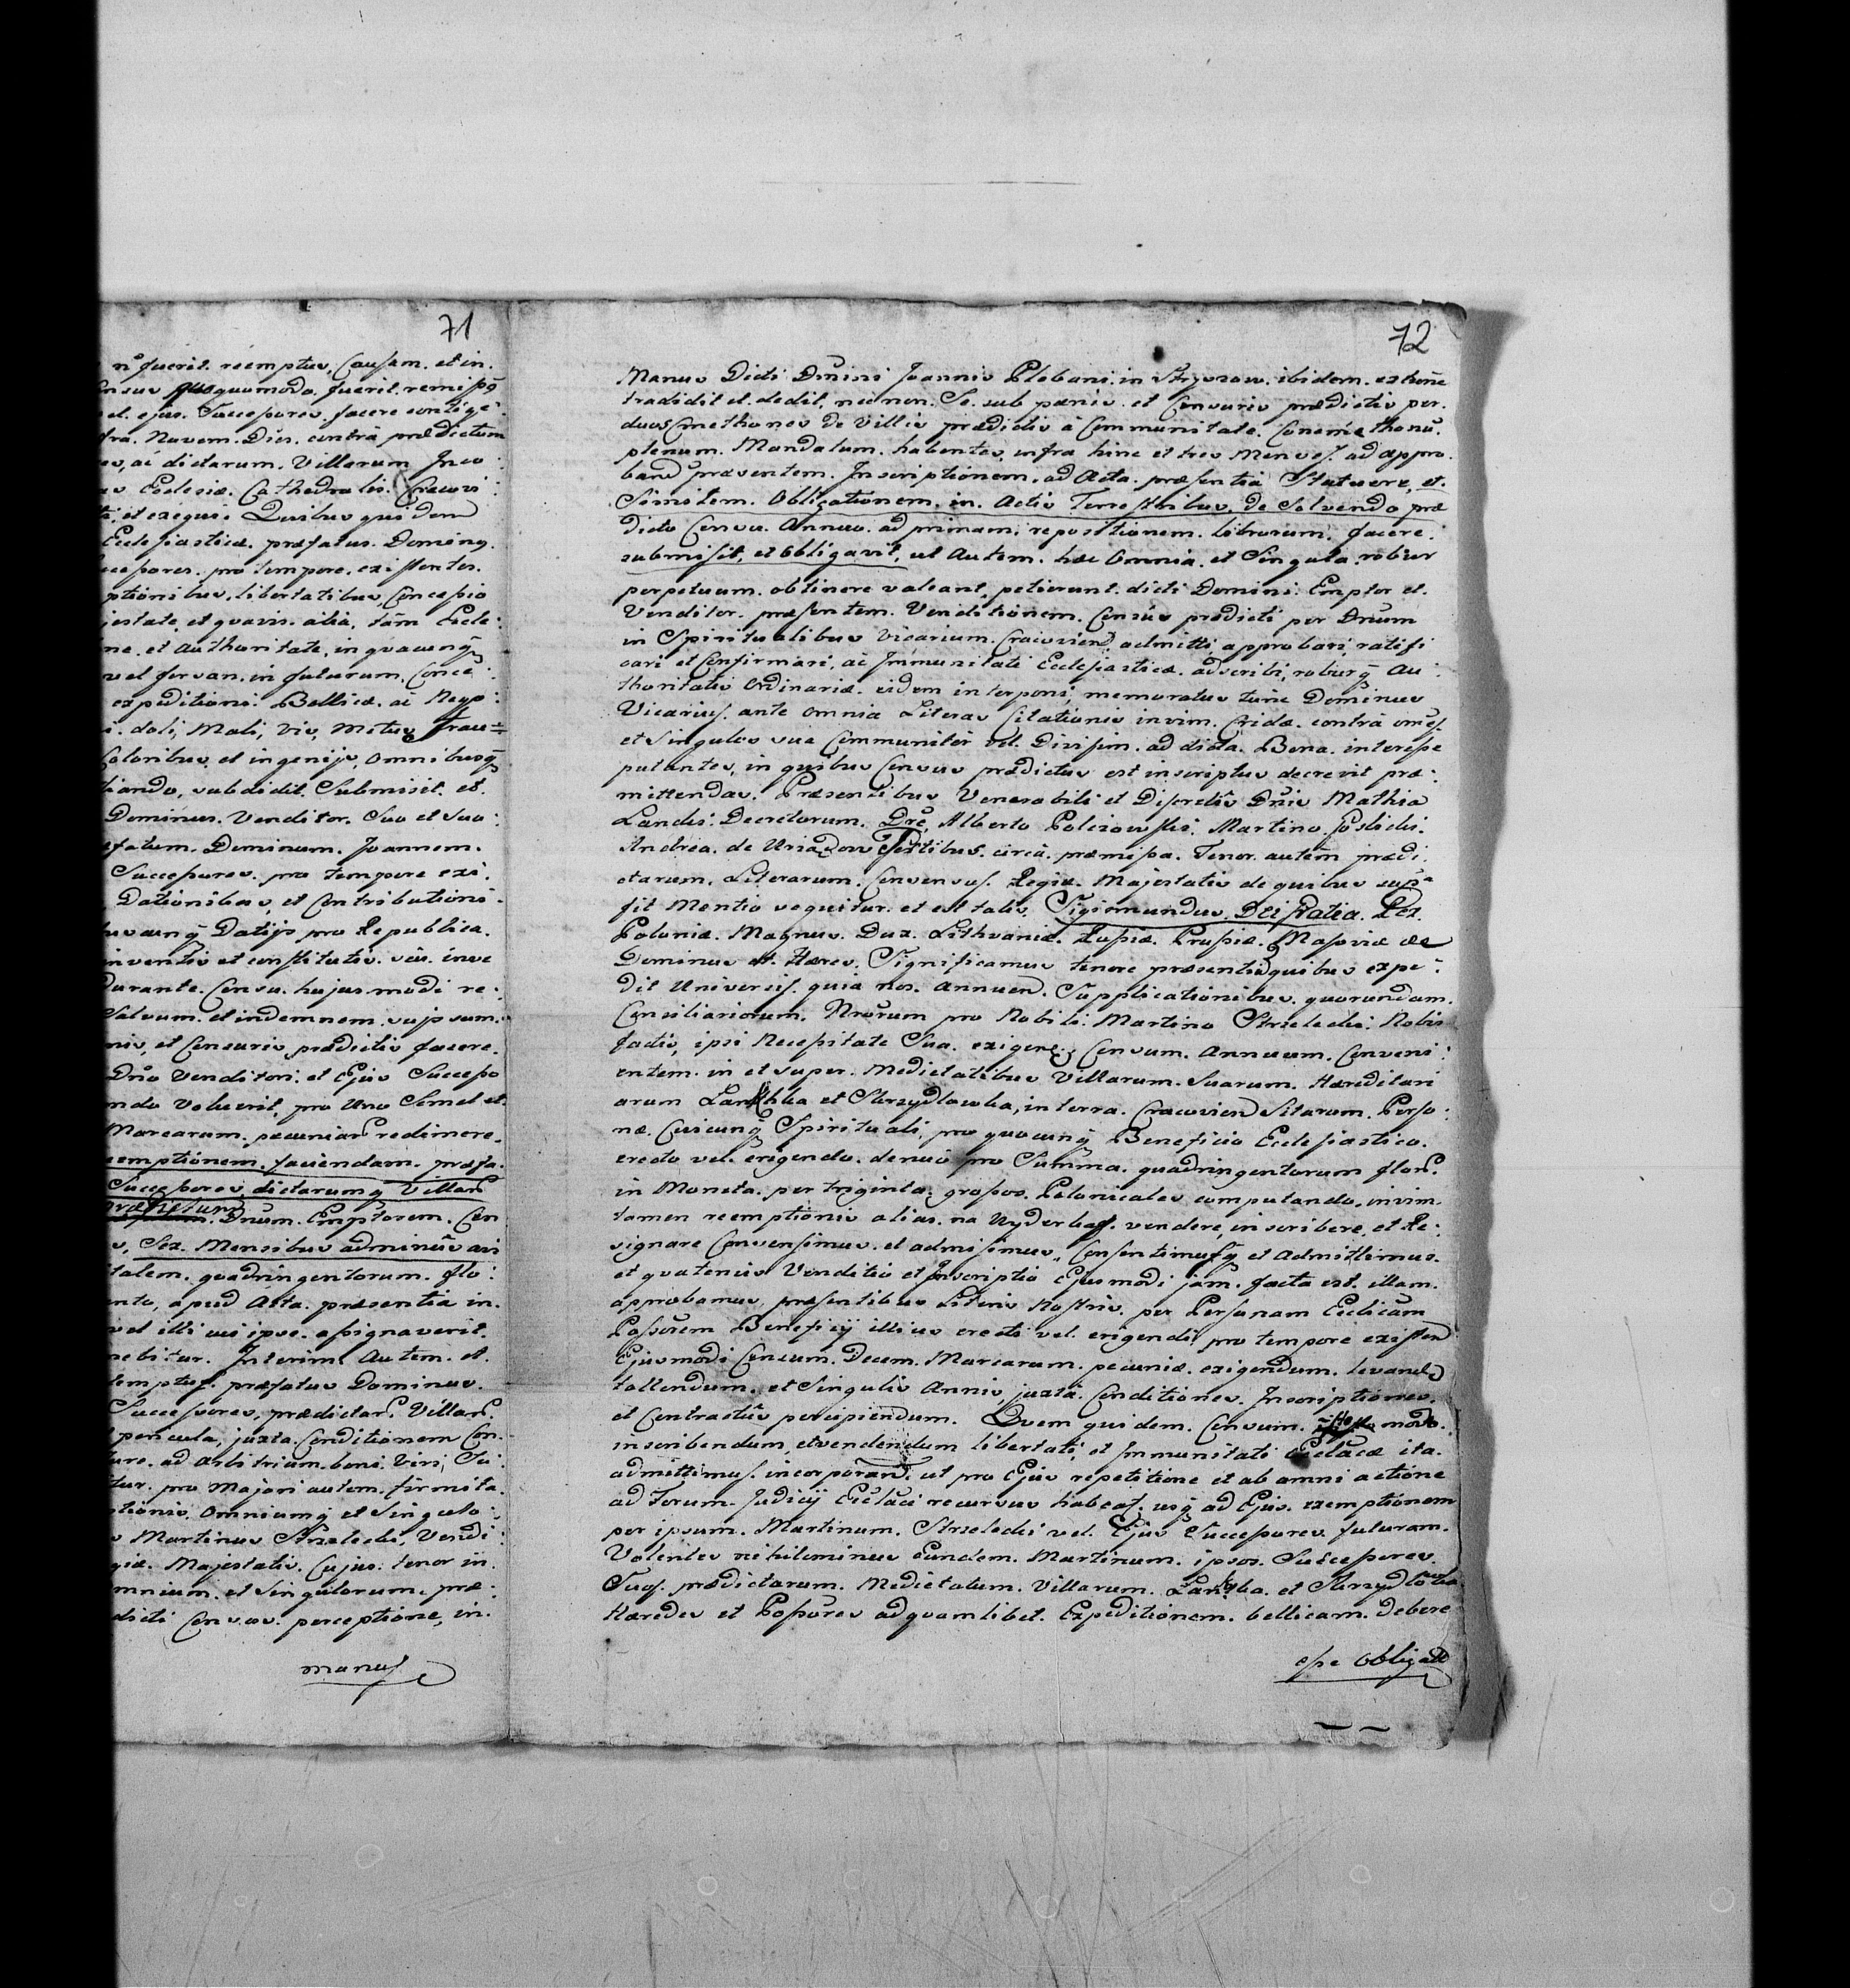 71
nō fuerit reemptus, Causam. et in.
ensus quoquomodo. fuerit. remissq̄
el. ejus. Successores facere contige:
fra. Novem. Dies. contrà prædictum
es, ac dictarum. Villarum Inco:
as Ecclesiæ. Cathedralis. Cracovi:
ti, et exequi. Quibus quidem
Ecclesiasticæ. præfatus. Dominus.
ccessores. pro tempore. existentes.
ptionibus. libertatibus, Concessio
jestate, et quavis. alia, tàm Eccle:
ne. et Authoritate, in quacunq̄
vel forsan. in futurum, Conce:
expeditioni. Bellicæ. ac Regs:
i. doli, Mali, vis, Metus Frau=
Coloribus, et ingenijs, Omnibusq̄
tiando, subdidit. Submisit. et.
Dominus. Venditor. Suo et Suo:
fatum. Dominum. Joannem.
Successores. pro tempore exi.
Dationibus, et Contributioni-
buscunq̄ Datijs pro Republica.
inventis et constitutis. seu. inve
Durante. Censu. hujusmodi re:
Salvum. et indemnem. suis sum.
nis, et Censuris prædictis facere.
Dn̄o Venditori. et Ejus Successo
ndo Voluerit, pro Uno Semel et.
Marcarum. pecuniar̄ redimere.
eemptionem. faciendam. præfa.
Successores, dictarumq̄ Villar̄
Dn̄um. Emptorem. Cen
s, Sex. Mensibus adminùs avi
talem. quadringentorum. flo:
nto, apud Acta. præsentia in.
vel illi cui ipse. assignaverit.
nebitur. Interim. Autem. et.
emptus. præfatus Dominus.
Successores, prædictar̄ Villar̄.
pericula, juxta. Conditionem Con.
ure. ad Arbitrium. boni. Viri, Su:
tur. pro Majori autem. firmita.
tionis. Omniumq̄ et Singulo:
s Martinus Strzelecki, Vendi:
giæ. Majestatis. Cujus. tenor in.
mnium. et Singulorum. præ:
dicti Census. perceptione, in.
manus
72
Manus Dicti Dn̄ini Joannis Plebani. in Stryszow. ibidem. exhōne
tradidit et. dedit, necnon. Se. sub pænis. et Censuris prædictis per.
duos Cmethones de Villis prædictis à Communitate. Conemethonū.
plenum. Mandatum. habentes, infra hinc et tres Menses. ad appro.
band̄ præsentem. Inscriptionem. ad Acta. præsentia Statuere, et.
Similem. Obligationem. in. Actis Terrestribus. De Solvendo præ
dicto Censu. Annuo. ad primam. repositionem. librorum. facere.
submisit, et Obligavit, ut Autem. hæc Omnia. et Singula robur
perpetuum. obtinere valeant, petierunt. dicti Domini. Emptor et.
Venditor. præsentem. Venditionem. Censùs prædicti per Dn̄um
in Spiritualibus Vicarium. Cracovien̄ admitti, approbari, ratifi
cari et Confirmari, ac Immunitati Ecclesiasticæ. adscribi, roburq̄ Au:
thoritatis Ordinariæ. eidem interponi, memoratus tunc Dominus
Vicarius. ante omnia Literas Citationis invim. Cridæ. contrà omēs.
et Singulos sua Communiter vel. Divisim. ad dicta. Bona. interesse
putantes, in quibus Census prædictus est inscriptus decrevit præ:
mittendas. Præsentibus Venerabili et Discretis Dn̄is Mathia
Landis. Decretorum. Dre, Alberto Polczowski. Martino
Andrea. de Testibus. circà. præmissa. Tenor. autēm prædi.
ctarum. Literarum. Consensus. Regiæ. Majestatis de quibus sup̄a
fit Mentio sequitur. et est talis. Sigismundus. DEI Gratia. Rex.
Poloniæ. Magnus. Dux. Lithvaniæ. Russiæ. Prussiæ. Masoviæ &c
Dominus et. Hæres. Significamus tenore præsentiū quibus expe:
dit Universis. quia nos. Annuen̄. Supplicationibus. quorundam.
Consiliariorum. Nrōrum pro Nobili. Martino Strzelecki. Nobis
factis, ipsi Necessitate Sua. exigente, Censum. Annuum. Conveni:
entem. in et super. Medietatibus Villarum. Suarum. Hæreditari
arum et Skrzydlowka, in terra. Cracovien̄ Sitarum. Perso:
næ. Cuicunq̄ Spirituali, pro quocunq̄ Beneficio Ecclesiastico.
erecto vel. erigendo. denuò pro Summa. quadringentorum flor̄.
in Moneta. per triginta. grossos. Polonicales computando, invim.
tamen reemptionis alias. na Wyderkaf. vendere, inscribere, et Re:
signare Consensimus. et admisimus, Consentimusq̄ et Admittimus.
et quatenùs Venditio et Inscriptio Ejusmodi jàm. facta est. illam.
approbamus, præsentibus Literis Nostris, per Personam Ecclīcam
Possōrem Beneficij illius erecti vel. erigendi pro tempore existen̄
Ejusmodi Censum. Decem. Marcarum. pecuniæ. exigendum. levand̄
tollendum. et Singulis Annis, juxtà. Conditiones. Inscriptiones.
et Contractûs percipiendum. Quem quidem. Censum. modo.
inscribendum, et vendendum libertati, et Immunitati Ecclācæ ita.
admittimus. incorporand̄. ut pro Ejus repetitione et ab omni actione
ad Forum. Judicij Ecclāci recursus habeat. usq̄ ad Ejus. exemptionem
per ipsum. Martinum. Strzelecki vel. Ejus Successores. futuram.
Volentes nihilominus Eundem. Martinum. ipsos. Successores.
Suos. prædictarum. Medietatum. Villarum. et Skrzydlowka.
Hæredes et Possōres ad quamlibet. Expeditionem. bellicam. Debere
esse Obligatt